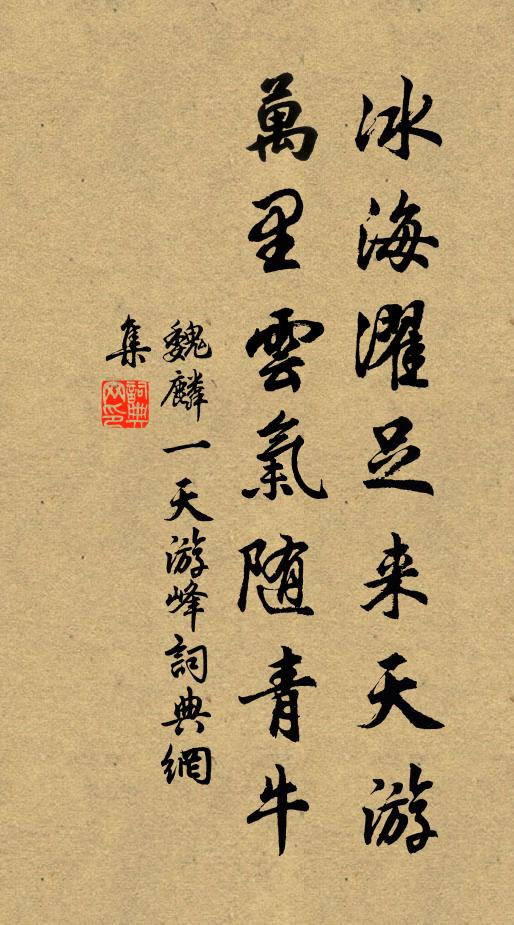 冰海濯足来天游
萬里雲氣随青牛
魏麟一天游峰詞典網
集
詞典网印